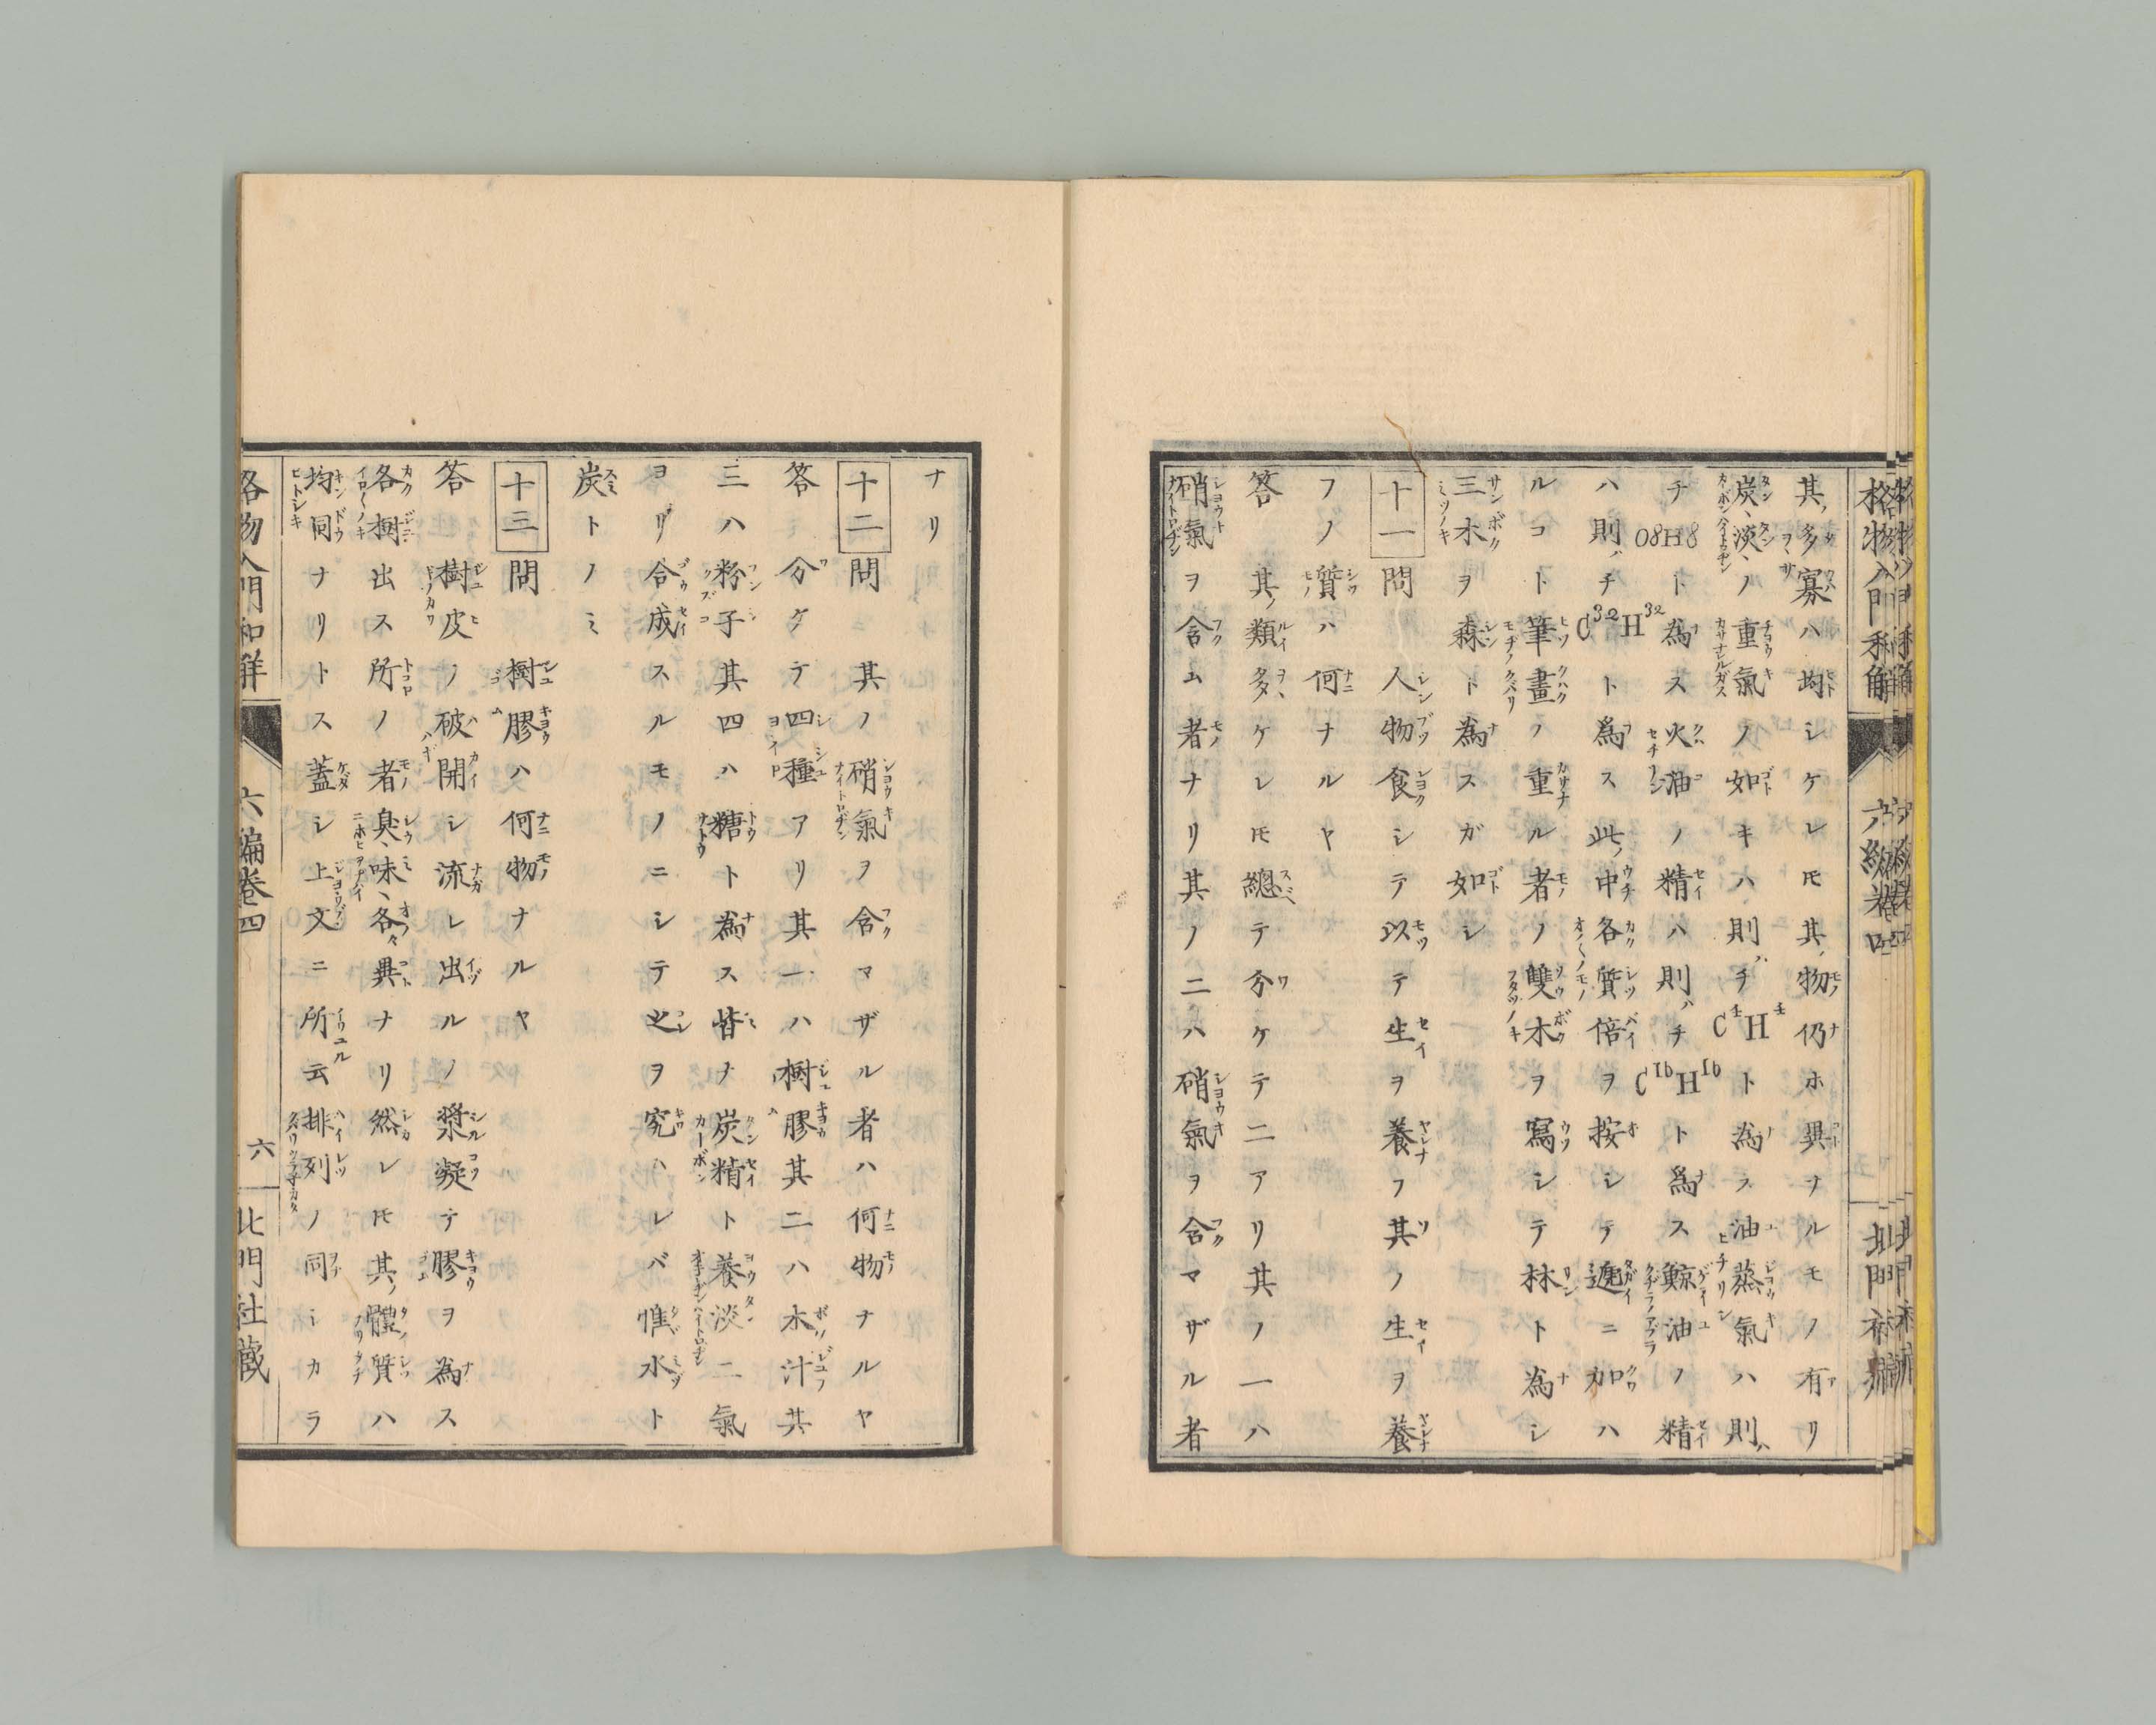 其ノ多寡ハ均シケレ𪜈其ノ物仍ホ異ナルモノ有リ
炭、淡、ノ重氣ノ如キハ、則チC4H4ト為ラ油蒸氣ハ則
チ08H8ト為ス火油ノ精ハ則チC16H16ト為ス鯨油ノ精
ハ則チC32H32ト為ス此ノ中各質倍ヲ按シテ遞ニ加ハ
ルコト筆畫ノ重ル者ノ雙木ヲ寫シテ林ト為シ
三木ヲ森ト為スガ如シ
十一問 人物食シテ以テ生ヲ養フ其ノ生ヲ養
フノ質ハ何ナルヤ
答 其ノ類多ケレ𪜈總テ分ケテ二アリ其ノ一ハ
硝氣ヲ含ム者ナリ其ノ二ハ硝氣ヲ含マザル者
ナリ
十二問 其ノ硝氣ヲ含マザル者ハ何物ナルヤ
答 分ケテ四種アリ其一ハ樹膠其二ハ木汁其
三ハ粉子其四ハ糖ト為ス皆ナ炭精ト養淡二氣
ヨリ合成スルモノニシテ之ヲ究ハレバ惟水ト
炭トノミ
十三問 樹膠ハ何物ナルヤ
答 樹皮ノ破開シ流レ出ルノ漿凝テ膠ヲ為ス
各樹出ス所ノ者臭、味、各々異ナリ然レ𪜈其ノ體質ハ
均同ナリトス蓋シ上文ニ所云排列ノ同シカラ
格物入門和解 六編卷四 六 北門社藏